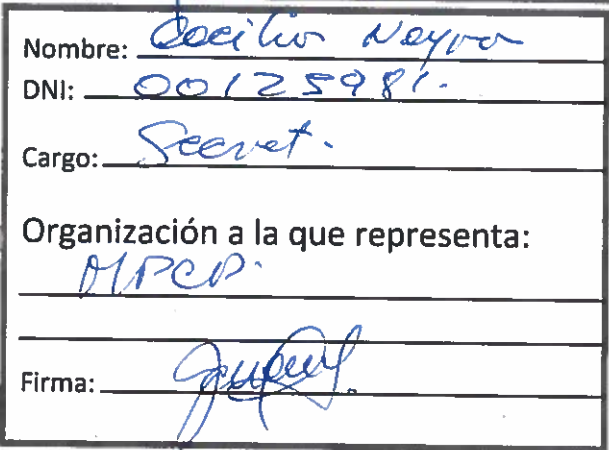 Nombre: Cecilio Neyra
DNI: 00125981.
Cargo: Secret.
Organización a la que representa:
MPCP.
Firma: